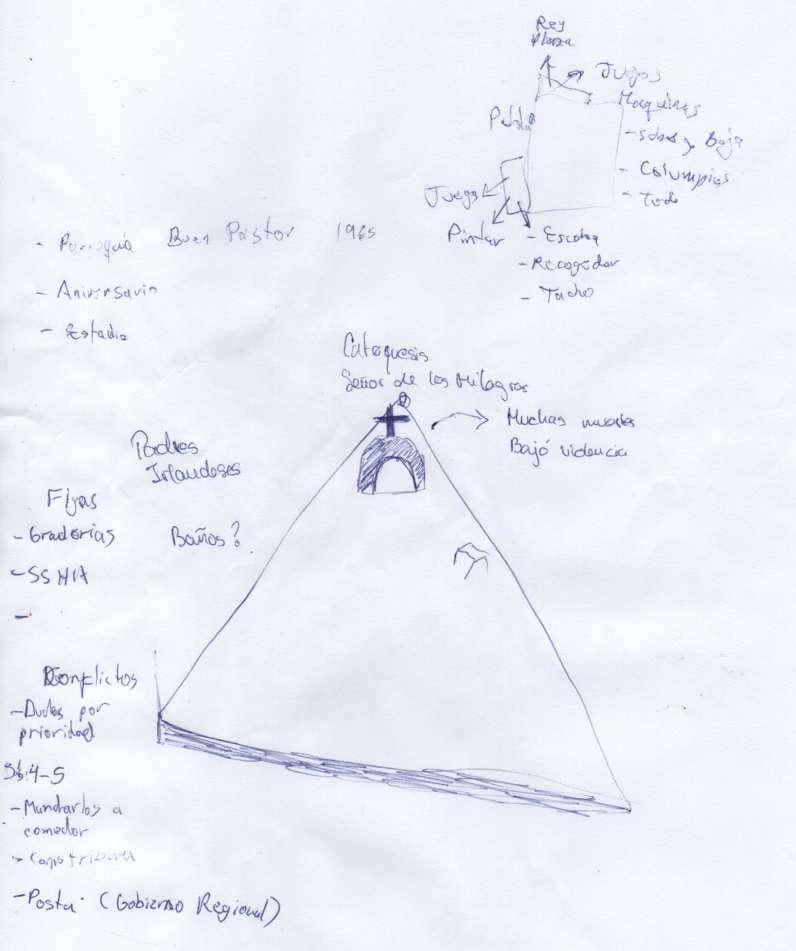 Rey
Plaza
Juegos
Maquinas
- Sube y Baja
- Columpios
- Todo
Juego
Pintar
- Escoba
- Recogedor
- Tacho
- Parroquia Buen Pastor 1965
- Aniversario
- Estadio
Catequesis
Señor de los Milagros
Muchas muertes
Bajó violencia
Padres
Irlandeses
Fijas
- Graderías
Baños?
- SSHH
Conflictos
- Dudas por
prioridad
4-5
- Mandarlos a
comedor
- Posta (Gobierno Regional)